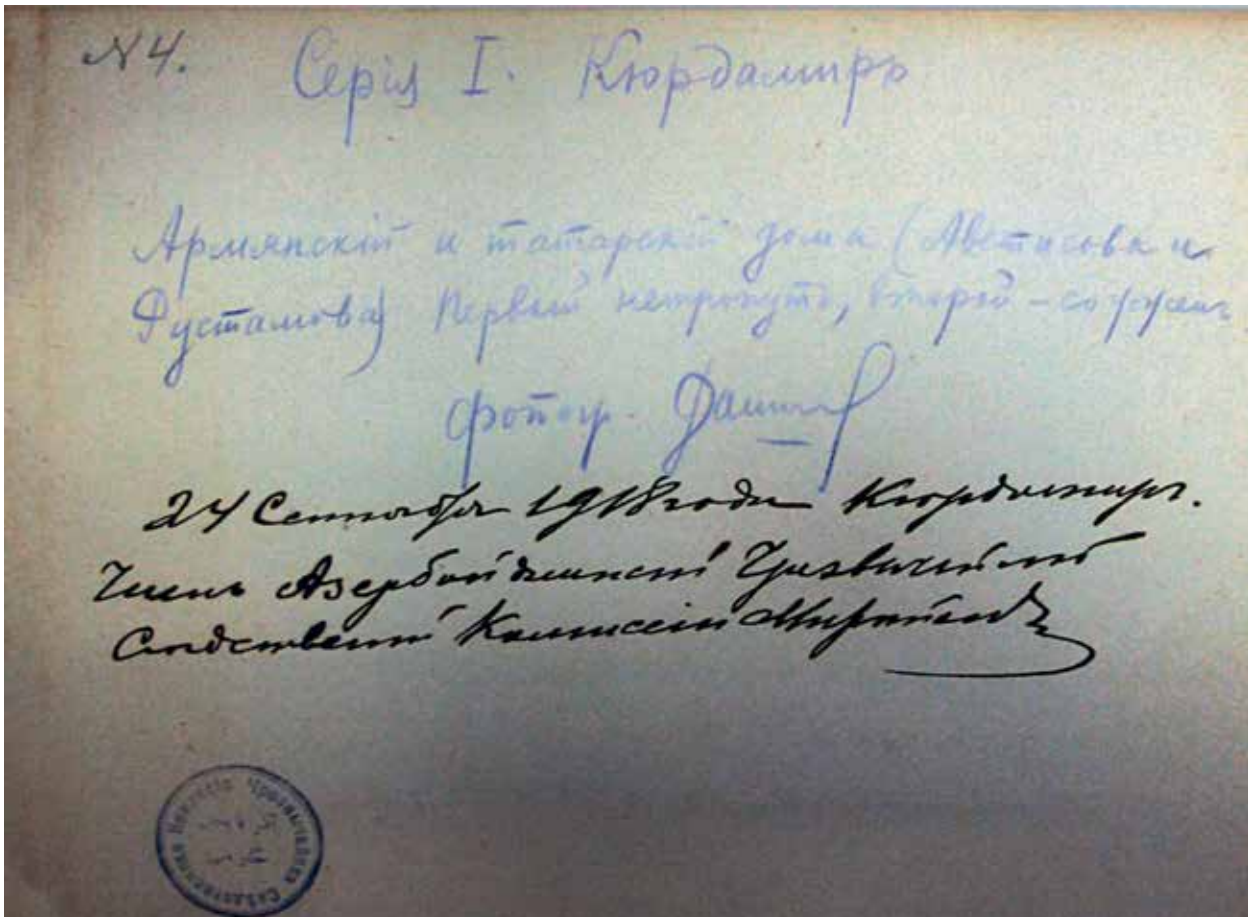 №4. Серія I. Кюрдамиръ
Армянскій и татарскій дома (Аветисова и
Рустамова) Первый нетронутъ, второй – сожженъ
фотогр.
24 Сентября 1918 года Кюрдамиръ.
Членъ Азербайджанской Чрезвычайной
Следственной Комиссіи
Чрезвычайная Следственная Комиссія